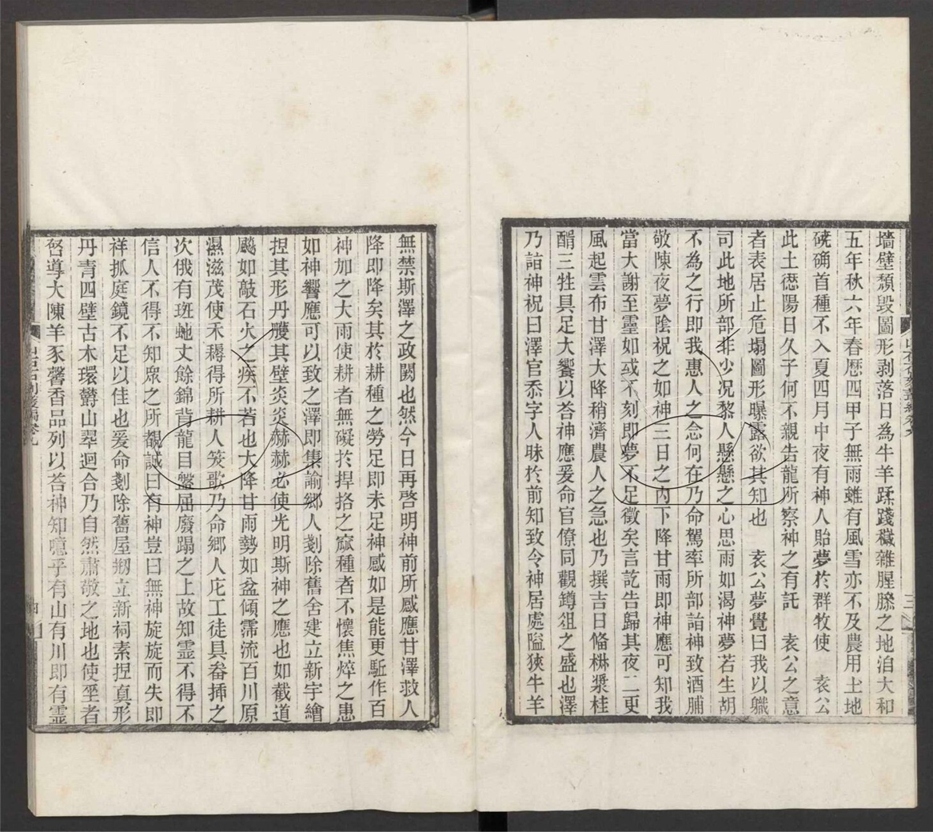 墻壁頽毀圖形剥落日為牛羊蹂踐穢雜腥臊之地洎大和
五年秋六年春厯四甲子無雨雖有風雪亦不及農用土地
硗确首種不入夏四月中夜有神人貽夢扵群牧使　袁公
此土徳陽日久子何不親告龍所察神之有託　袁公之意
者表居止危塌圖形曝露欲其知也　袁公夢覺曰我以職
司此地所部非少况黎人懸懸之心思雨如渴神夢若生胡
不為之行即我惠人之念何在乃命駕率所部詣神致酒脯
敬陳夜夢陰祝之如神三日之內下降甘雨即神應可知我
當大謝至靈如或不刻即夢不足徵矣言訖告歸其夜二更
風起雲布甘澤大降稍濟農人之急也乃撰吉日俻椒漿桂
醑三牲具足大饗以荅神應爰命官僚同觀罇俎之盛也澤
乃詣神祝曰澤官忝字人昧扵前知致令神居處隘狹牛羊
無禁斯澤之政闕也然今日再啓明神前所感應甘澤救人
降即降矣其扵耕種之勞足即未足神感如是能更駈作百
神加之大雨使耕者無礙扵捍挌之窳種者不懷焦焠之患
如神響應可以致之澤即集諭郷人剗除舊舍建立新宇繪
捏其形丹雘其壁炎炎赫赫必使光明斯神之應也如截道
颷如敲石火之疾不若也大降甘雨勢如盆傾霈流百川原
濕滋茂使禾稼得所耕人笑歌乃命郷人庀工徒具畚挿之
次俄有斑虵丈餘錦背龍目盤屈廢蹋之上故知靈不得不
信人不得不知眾之所覩誠曰有神豈曰無神旋旋而失即
祥狐庭鏡不足以佳也爰命剗除舊屋刱立新祠素捏真形
丹青四壁古木環欝山翠迴合乃自然肅敬之地也使至者
啓導大陳羊豕馨香品列以荅神知噫乎有山有川即有靈